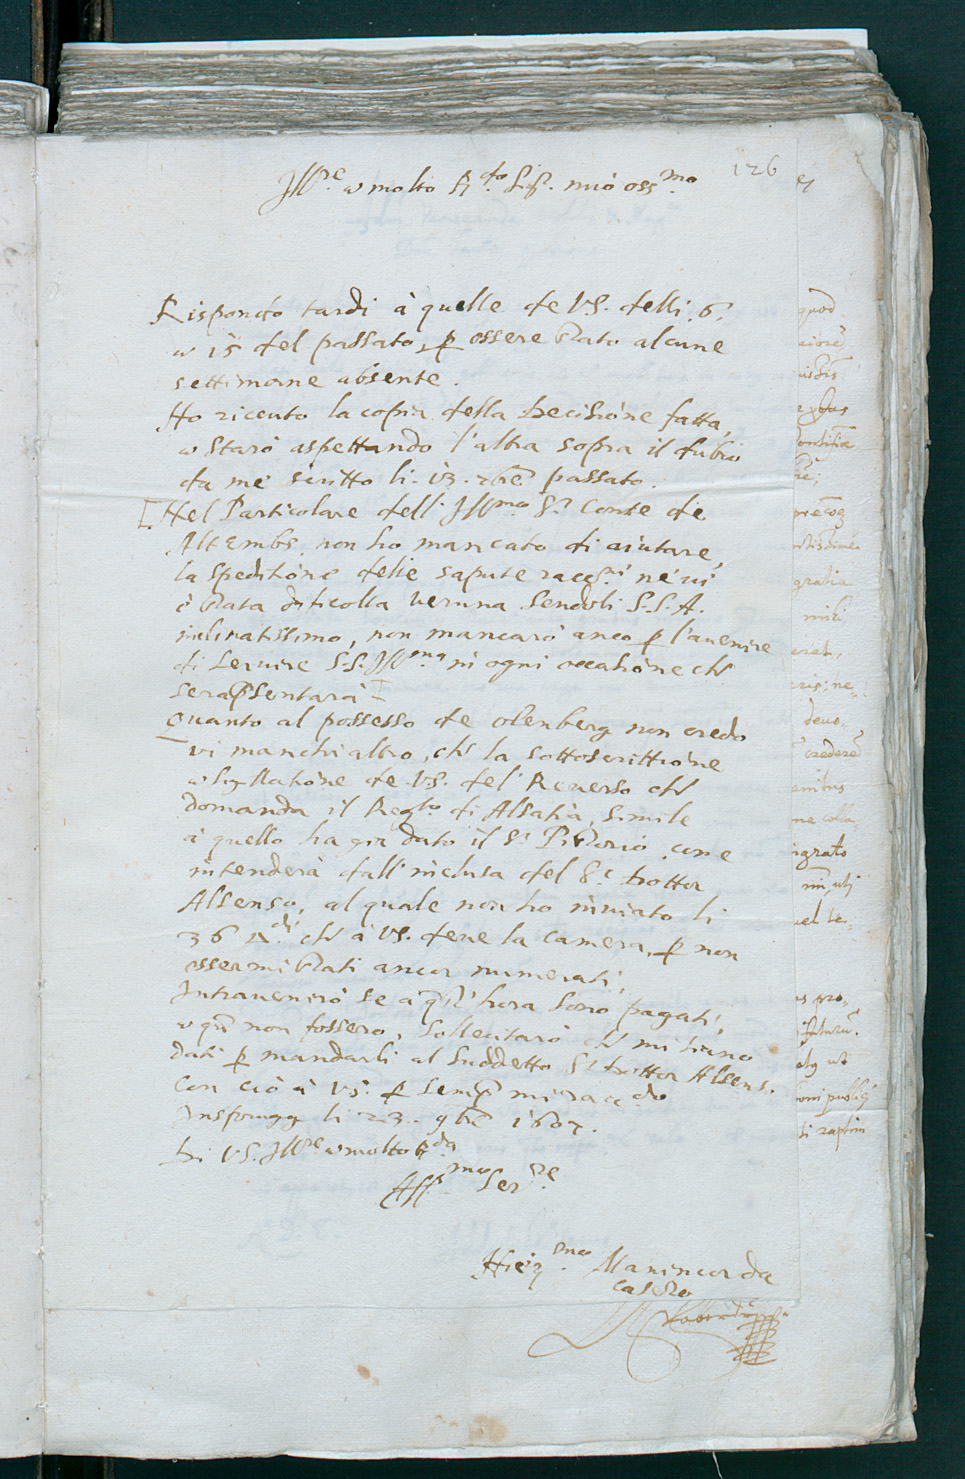 126
Ill.re et molto R.do Sig.r mio oss.mo
Rispondo tardi à quelle de VS. delli .6.
et 15 del passato, p essere stato alcune
settimane absente.
Ho riceuto la copia della Decisione fatta,
et starò aspettando l'altra sopra il dubio
da me scritto li. 13. 7bre passato.
[Nel Particolare dell' Ill.mo S.r Conte de
Alt Embs non ho mancato di aiutare,
la speditione delle sapute rac.ni ne ui
è stata dificolta ueruna sendoli S.S.A.
inclinatissimo, non mancarò anco p l'auenire
di seruire S.S. Ill.ma in ogni occasione ch
se rapsentarà]
Quanto al possesso de olenberg non credo
vi manchi altro, ch la sottoscrittione
et sig.llatione de VS. del Reuerso ch
domanda il Reg.to di Alsatia, simile
à quello ha gia dato il S.r Pistorio, come
intenderà dall'inclusa del S.r Dottor
Alsenso, al quale non ho inuiato li
36 ch à VS. deue la camera, p non
essermi stati ancor numerati,
Intrauenirò se à q.st' hora sono pagati,
et qn non fossero, sollecitarò ch mi siano
dati p mandarli al suddetto S.r Dottor Alsens.
Con ciò à VS. p semp mi racc.do
Insprugg li 23. 9bre 1607.
Di VS. Ill.re et molto R.da
Aff.mo Ser.re
Hier.mo Manincor da
Casetto
quod
gratia
mihi
deuo.
credere
ingrato
uel te-
pro-
ut
raptim